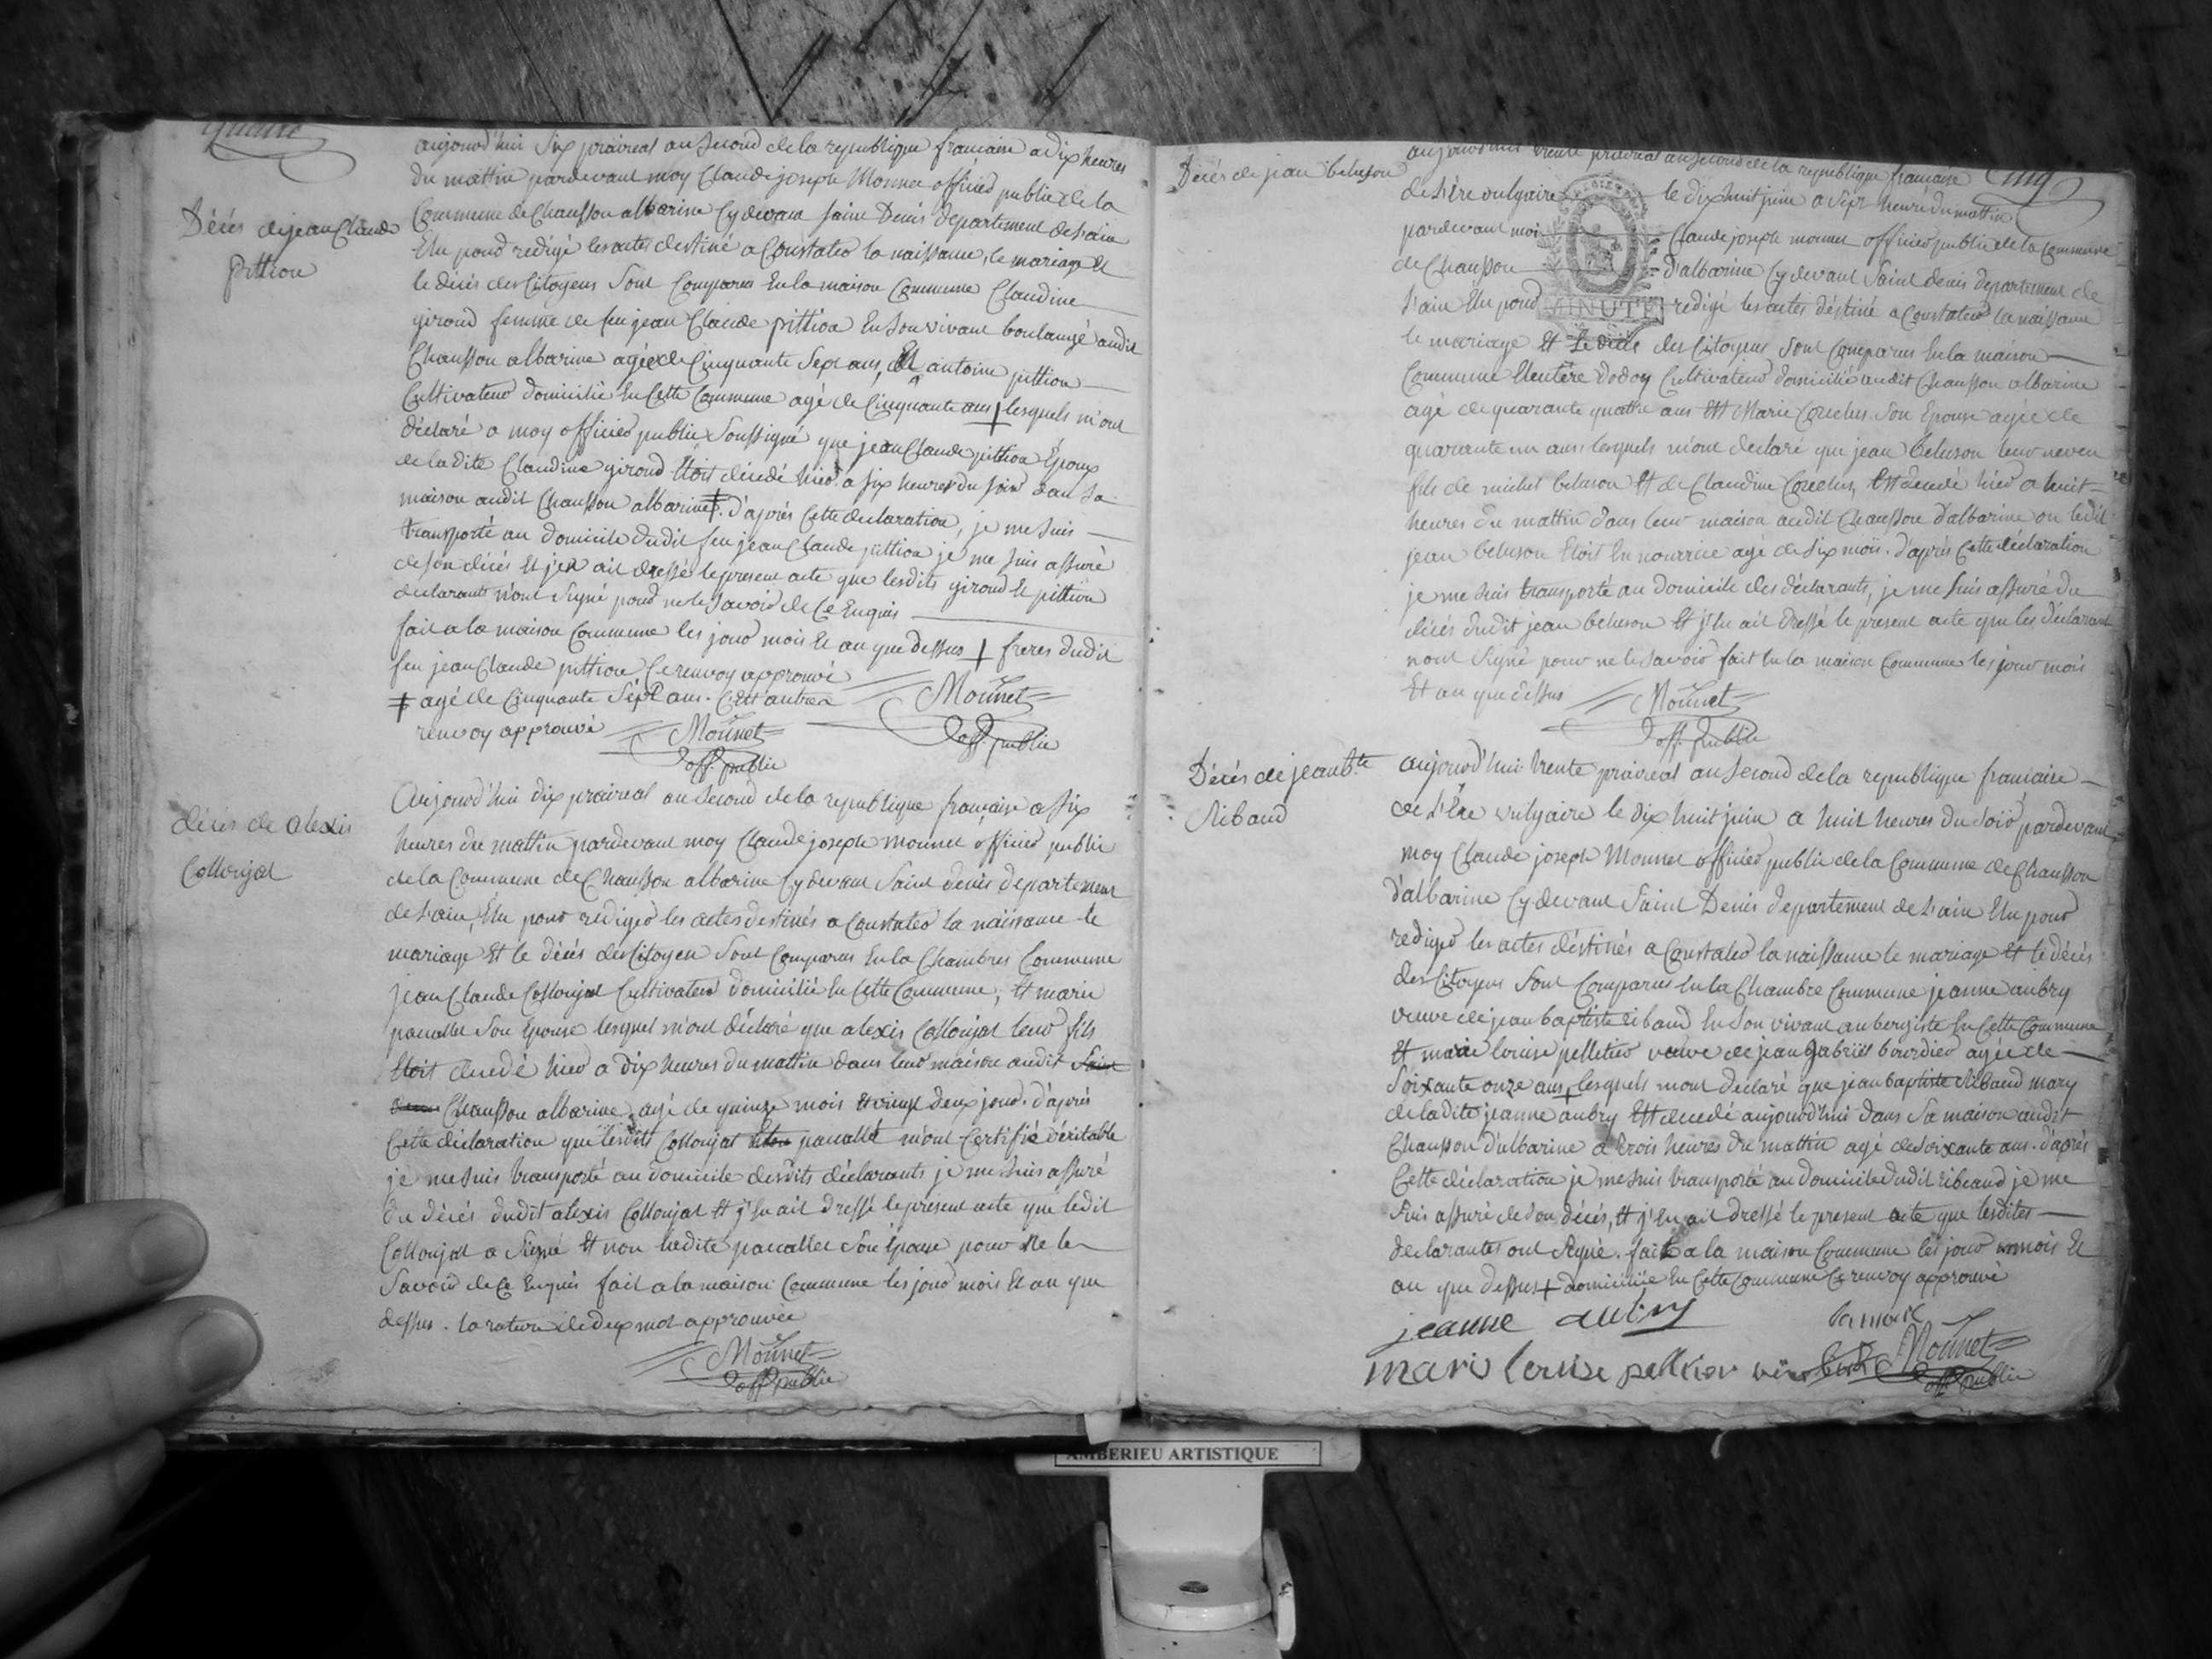 Décés de jean Claude
pittion
aujourd'hui six praireal an second de la republique francaise a dix heures
du mattin pardevant moy Claude joseph Monnet officier public de la
Commune de Chausson albarine Cy devant saint Denis departement de l'ain
Elu pour redigé les actes destiné a Constater la naissance, le mariage et
le décés des Citoyens sont Comparus En la maison Commune Claudine
giroud femme de feu jean Claude pittion En son vivant boulangé audit
Chausson albarine agée de Cinquante sept ans, Et antoine pittion
Cultivateur domicilié En Cette Commune agé de Cinquante ans + lesquels m'ont
déclaré a moy officier public soussigné que jean Claude pittion Epoux
de ladite Claudine giroud Etoit décédé hier a six heures du soir dans sa
maison audit Chausson albarine ‡. d'après Cette declaration, je me suis
transporté au domicile dudit feu jean Claude pittion je me suis assuré
de son décés Et j'en ait dressé le present acte que lesdits giroud Et pittion
declarants n'ont signé pour ne le savoir de Ce Enquis
fait a la maison Commune les jour mois Et an que dessus + freres dudit
feu jean Claude pittion Ce renvoy approuvé
‡ agé de Cinquante sept ans. Cet autre
renvoy approuvé
Monnet
off. public
Monnet
off. public
décés de alexis
Collonjat
Aujourd'hui dix praireal an second de la republique française a six
heures du mattin pardevant moy Claude joseph monnet officier public
de la Commune de Chausson albarine Cy devant Saint denis departement
de l'ain, Elu pour rediger les actes destinés a Constater la naissance le
mariage Et le décés des Citoyen sont Comparus En la Chambres Commune
jean Claude Collonjat Cultivateur domicilié En Cette Commune, Et marie
pacallet son Epouse lesquel m'ont déclaré que alexis Collonjat leur fils
Etoit decedé hier a dix heures du mattin dans leur maison audit Saint
denis Chausson albarine, agé de quinze mois deux jour. d'après
Cette déclaration que lesdits Collonjat pacallet m'ont Certifié véritable
je me suis transporté au domicile desdits déclarants je me suis assuré
du décés dudit alexis Collonjat Et j'en ait dressé le present acte que ledit
Collonjat a signé Et non ladite pacallet son Epouse pour ne le
savoir de Ce Enquis fait a la maison Commune les jour mois Et an que
dessus. la rature de deux mot approuvée
Monnet
off public
Décés de jean beluson
aujourd'hui trente prairial an second de la republique francaise
Cinq
de l'ère vulgaire le dix huit juin a sept heure du mattin
pardevant moi Claude joseph monnet officier public de la Commune
de Chausson d'albarine Cy devant Saint denis departement de
l'ain Elu pour redigé les actes déstiné a Constater la naissance
MINUTE
le mariage Et le décés des Citoyens sont Comparus En la maison
Commune Eleutére dodoy Cultivateur domicilié audit Chausson albarine
agé de quarante quattre ans Et Marie Couchu son Epouse agée de
quarante un ans lesquels m'ont declaré que jean beluson leur neveu
fils de michel beluson Et de Claudine Couchu, Est decedé hier a huit
heures du mattin dans leur maison audit Chausson d'albarine ou ledit
jean beluson Etoit En nourrice agé de six mois. d'après Cette déclaration
je me suis transporté au domicile des déclarants, je me suis assuré du
décés dudit jean beluson Et j'En ait dressé le present acte que les déclarant
n'ont signé pour ne le savoir fait En la maison Commune les jour mois
Et an que dessus
Monnet
off. public
Décés de jean bte
Ribaud
aujourd'hui trente prairéal an second de la republique francaise
de L'Ere vulgaire le dix huit juin a huit heures du soir pardevant
moy Claude joseph Monnet officier public de la Commune de Chausson
d'albarine Cy devant Saint Denis departement de l'ain Elu pour
rediger les actes déstinés a Constater la naissance le mariage Et le décés
des Citoyens sont Comparues En la Chambre Commune jeanne aubry
veuve de jean baptiste ribaud En son vivant aubergiste En Cette Commune
Et marie louise pelletier veuve de jean gabriel bourdier agée de
soixante onze ans + lesquels m'ont declaré que jean baptiste Ribaud mary
de ladite jeanne aubry Est decedé aujourd'hui dans sa maison audit
Chausson d'albarine a trois heures du mattin agé de soixante ans. d'après
Cette déclaration je me suis transporté au domicile dudit ribaud je me
suis assuré de son décés, Et j'En ait dressé le present acte que lesdites
declarantes ont signé. fait a la maison Commune les jour mois Et
an que dessus + domiciliée En Cette Commune Ce renvoy approuvé
jeanne aubry
mari louise pelletier
Monnet
off. public
AMBERIEU ARTISTIQUE